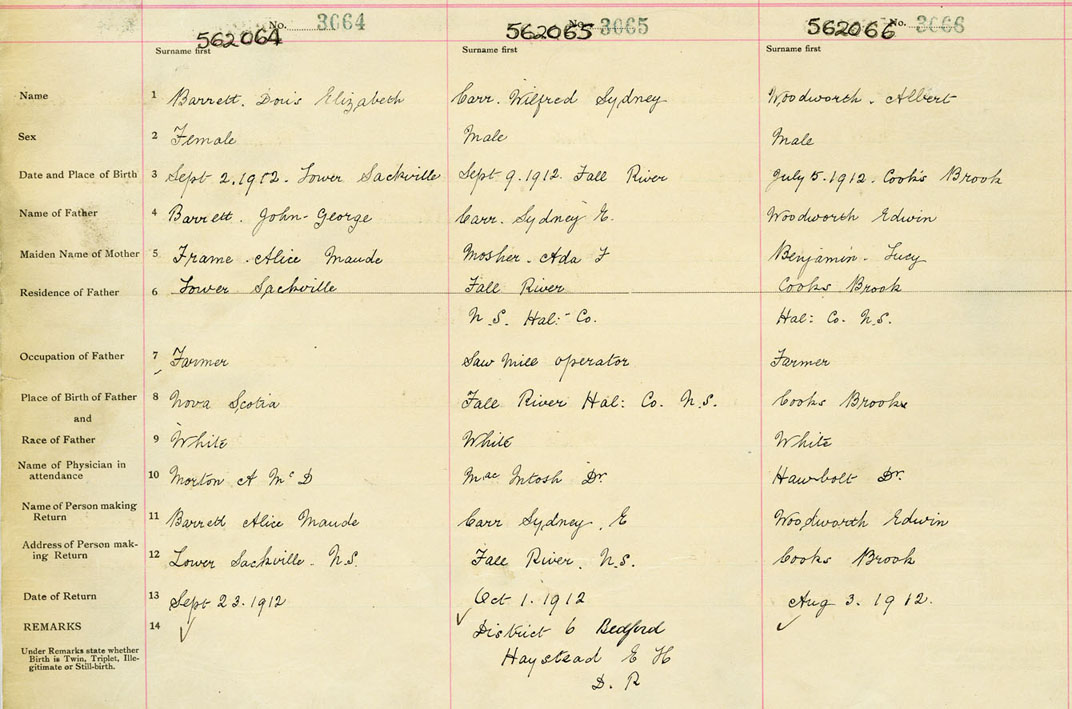 No. 3064 No. 3065 No. 3066
562064 562065 562066
Surname first Surname first Surname first
Name 1 Barrett. Doris Elizabeth Carr. Wilfred Sydney Woodworth. Albert
Sex 2 Female Male Male
Date and Place of Birth 3 Sept 2. 1912. Lower Sackville Sept 9. 1912. Fall River July 5. 1912. Cooks Brook
Name of Father 4 Barrett. John-George Carr. Sydney E. Woodworth Edwin
Maiden Name of Mother 5 Frame. Alice Maude Mosher. Ada F Benjamin. Lucy
Residence of Father 6 Lower Sackville Fall River Cooks Brook
N.S. Hal: Co. Hal: Co. N.S.
Occupation of Father 7 Farmer Saw Mill operator Farmer
Place of Birth of Father 8 Nova Scotia Fall River Hal: Co. N.S. Cooks Brook
and
Race of Father 9 White White White
Name of Physician in
attendance 10 Morton A McD MacIntosh Dr. Hawbolt Dr.
Name of Person making
Return 11 Barrett Alice Maude Carr Sydney. E Woodworth Edwin
Address of Person mak-
ing Return 12 Lower Sackville. N.S. Fall River. N.S. Cooks Brook
Date of Return 13 Sept 23. 1912 Oct 1. 1912 Aug 3. 1912.
REMARKS 14 ✓ ✓ District 6 Bedford ✓
Under Remarks state whether
Birth is Twin, Triplet, Ille-
gitimate or Still-birth.
Haystead E H
D. R